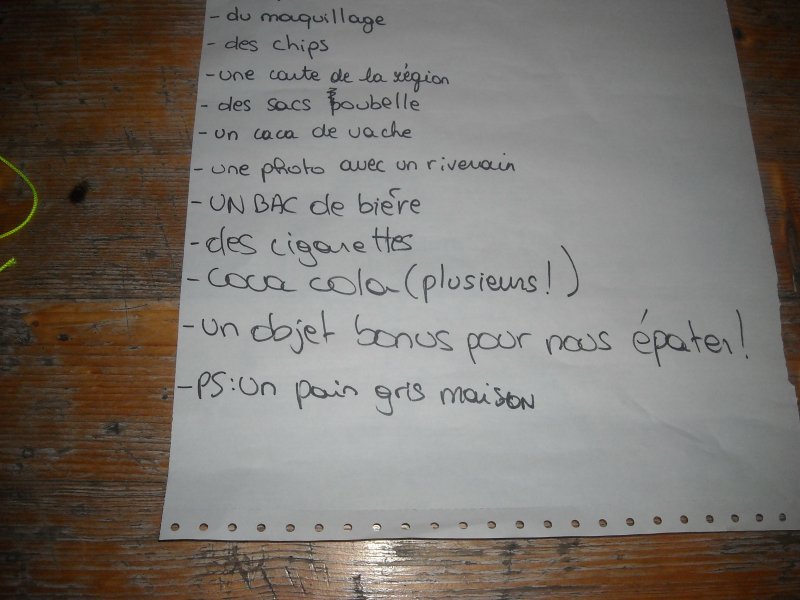 - du maquillage
- des chips
- une carte de la région
- des sacs poubelle
- un caca de vache
- une photo avec un riverain
- UN BAC de bière
- des cigarettes
- coca cola (plusieurs!)
- un objet bonus pour nous épater!
- PS: un pain gris maison